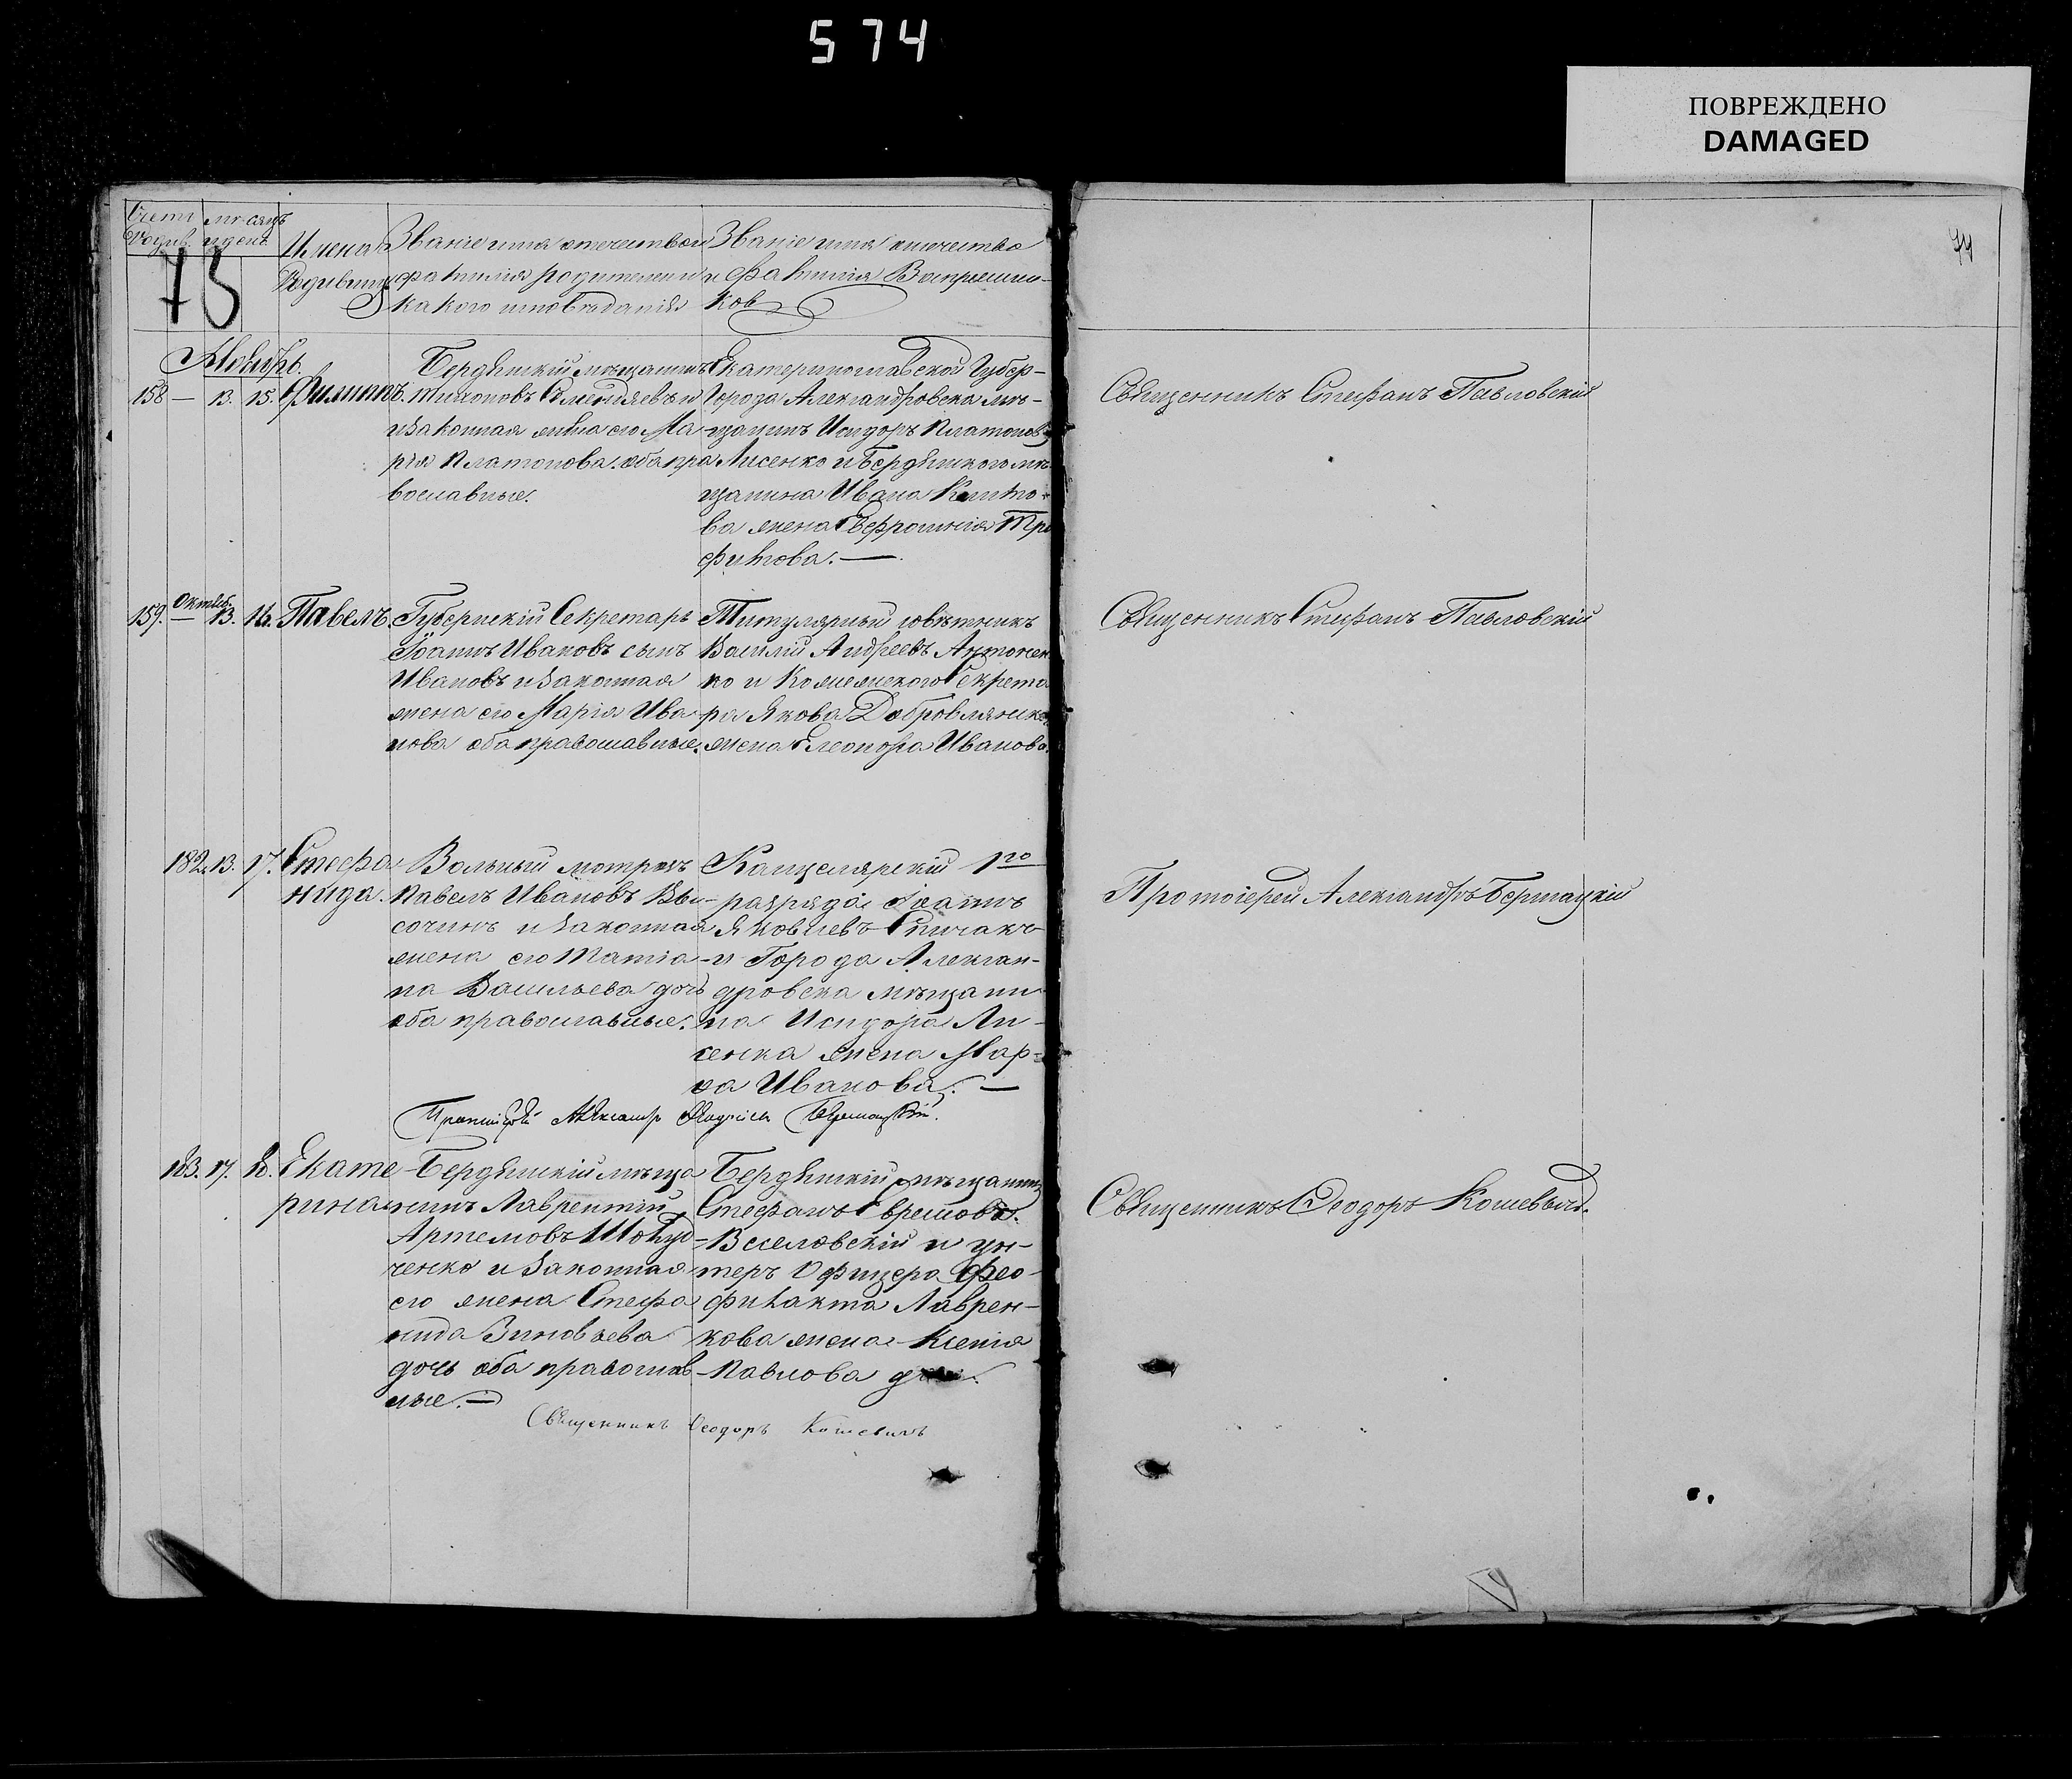 574
ПОВРЕЖДЕНО
DAMAGED
Счетъ мѣсяцъ
Родив. и день
73
Имена
Родивших
Званіе имя отечество и
фамилія родителей и
какого исповѣданія
Званіе имя отчество
и фамилія Воспріемни-
ков
74
Ноябрь.
158 — 13. 15. Филиппъ.
Бердянскій мѣщанинъ
Тихоновъ и
и законная жена его Ма-
рія Платонова. оба пра
вославные.
Екатеринославской Губер-
Города Александровска мѣ-
щанинъ Исидоръ Платонов
Лисенко и Бердянскаго мѣ
щанина Ивана
ва жена Евфросинія Тро
фимова. —
Священникъ Стефанъ Павловскій
159. Октяб. 13. 16. Павелъ.
Губернскій Секретарь
Іоаннъ Ивановъ сынъ
Ивановъ и законная
жена его Марія Ива-
нова оба православные.
Титулярный совѣтникъ
Василій Андреевъ Антонен
ко и Колежскаго Секрета
ря Якова
жена Елеонора Иванова.
Священникъ Стефанъ Павловскій
182. 13. 17. Стефа
нида.
Вольный матрозъ
Павелъ Ивановъ Вы-
сочинъ и законная
жена его Татіа-
на Васильева дочь
оба православные.
Канцелярскій 1го
разряда Іоаннъ
Яковлевъ Спичакъ
и Города Алексан-
дровска мѣщани
на Исидора Ли-
сенка жена Мар-
ѳа Иванова. —
Протоіерей Александръ Бершацкій
Протоіерей Александр
183. 17. Екате
рина
Бердянскій мѣща
нинъ Лаврентій
Артемовъ
ченко и законная
его жена Стефа
нида Зиновьева
дочь оба православ-
ные. —
Бердянскій мѣщанинъ
Стефанъ
Веселовскій и ун-
теръ Офицера Фео-
филакта Лаврен-
кова жена Ксенія
Павлова
Священникъ Ѳеодоръ Кошевый.
Священникъ Ѳеодоръ